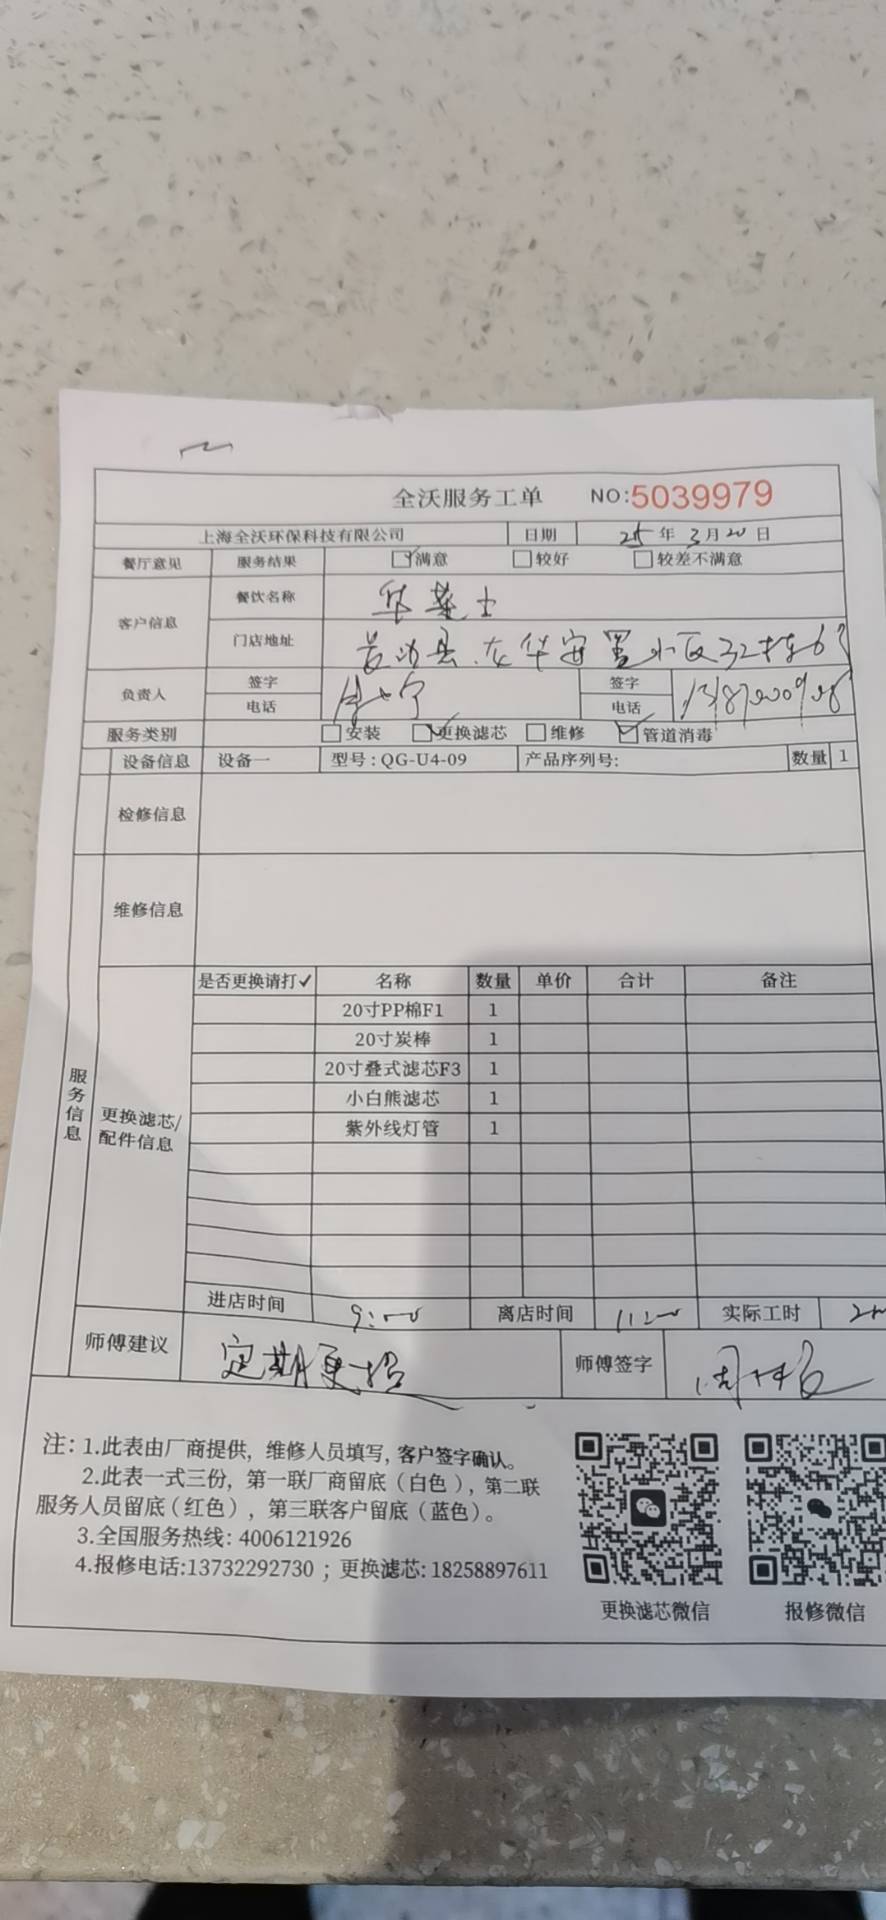 全沃服务工单 NO:5039979
上海全沃环保科技有限公司 日期 25年3月20日
餐厅意见 服务结果 满意 较好 较差不满意
客户信息 餐饮名称 华莱士
门店地址 县 华安置小区32栋6
负责人 签字 签字
电话 电话
服务类别 安装 更换滤芯 维修 管道消毒
设备信息 设备一 型号:QG-U4-09 产品序列号: 数量 1
检修信息
维修信息
服务信息
更换滤芯/
配件信息
是否更换请打✓ 名称 数量 单价 合计 备注
20寸PP棉F1 1
20寸炭棒 1
20寸叠式滤芯F3 1
小白熊滤芯 1
紫外线灯管 1
进店时间 9:00 离店时间 11:00 实际工时
师傅建议 定期更换 师傅签字
注: 1.此表由厂商提供, 维修人员填写, 客户签字确认。
2.此表一式三份, 第一联厂商留底(白色), 第二联
服务人员留底(红色), 第三联客户留底(蓝色)。
3.全国服务热线: 4006121926
4.报修电话:13732292730 ; 更换滤芯: 18258897611
更换滤芯微信 报修微信